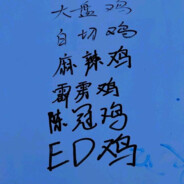 大盘鸡
白切鸡
麻辣鸡
霹雳鸡
陈冠鸡
ED鸡